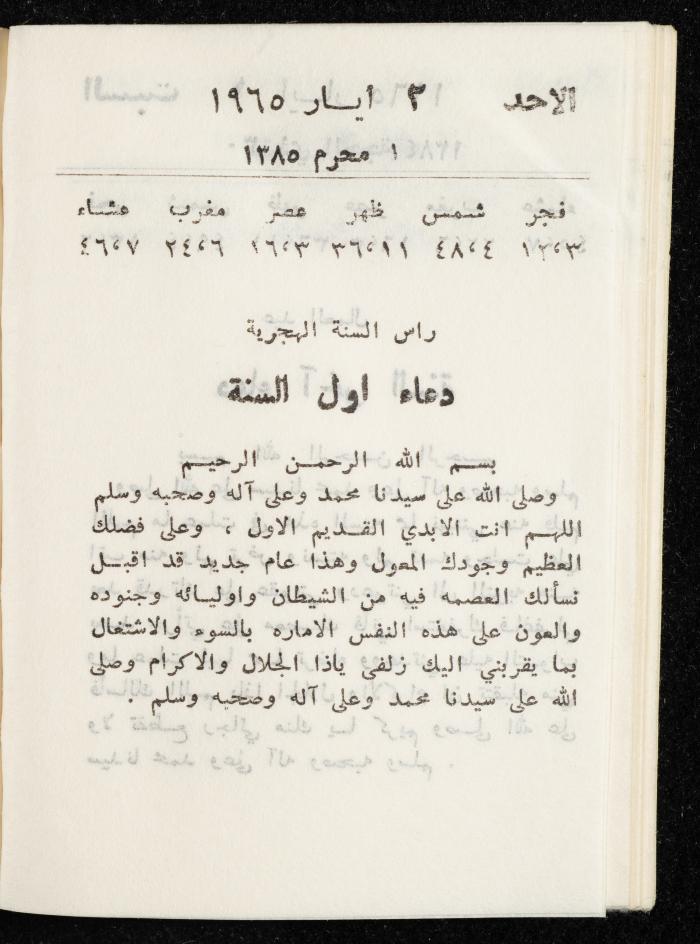 الاحد ٢ ايار ١٩٦٥
١ محرم ١٣٨٥
فجر شمس ظهر عصر مغرب عشاء
١٣،٣ ٤٨،٤ ٣٦،١١ ١٦،٣ ٢٤،٦ ٤٦،٧
راس السنة الهجرية
دعاء اول السنة
بسم الله الرحمن الرحيم
وصلى الله على سيدنا محمد وعلى آله وصحبه وسلم
اللهم انت الابدي القديم الاول ، وعلى فضلك
العظيم وجودك المعول وهذا عام جديد قد اقبل
نسألك العصمه فيه من الشيطان واوليائه وجنوده
والعون على هذه النفس الاماره بالسوء والاشتغال
بما يقربني اليك زلفى ياذا الجلال والاكرام وصلى
الله على سيدنا محمد وعلى آله وصحبه وسلم .